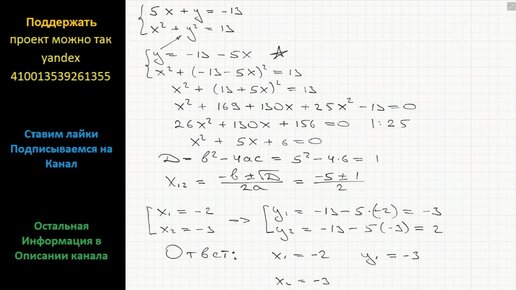 Поддержать
проект можно так
yandex
410013539261355
Ставим лайки
Подписываемся на
Канал
Остальная
Информация в
Описании канала
5x + y = -13
x² + y² = 13
y = -13 - 5x
x² + (-13 - 5x)² = 13
x² + (13 + 5x)² = 13
x² + 169 + 130x + 25x² - 13 = 0
26x² + 130x + 156 = 0 | : 25
x² + 5x + 6 = 0
D = b² - 4ac = 5² - 4·6 = 1
x₁₂ = (-b ± √D)/2a = (-5 ± 1)/2
x₁ = -2 => y₁ = -13 - 5·(-2) = -3
x₂ = -3 y₂ = -13 - 5(-3) = 2
Ответ: x₁ = -2 y₁ = -3
x₂ = -3